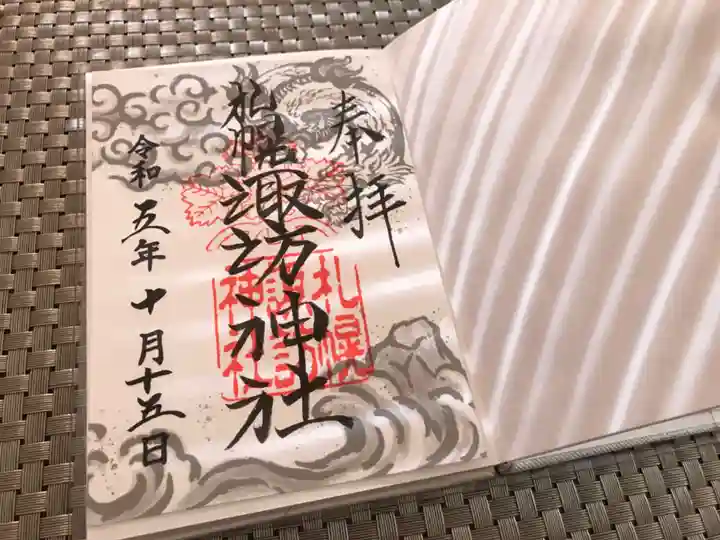 奉拝
札幌諏訪神社
令和五年十月十五日
札幌
諏訪
神社